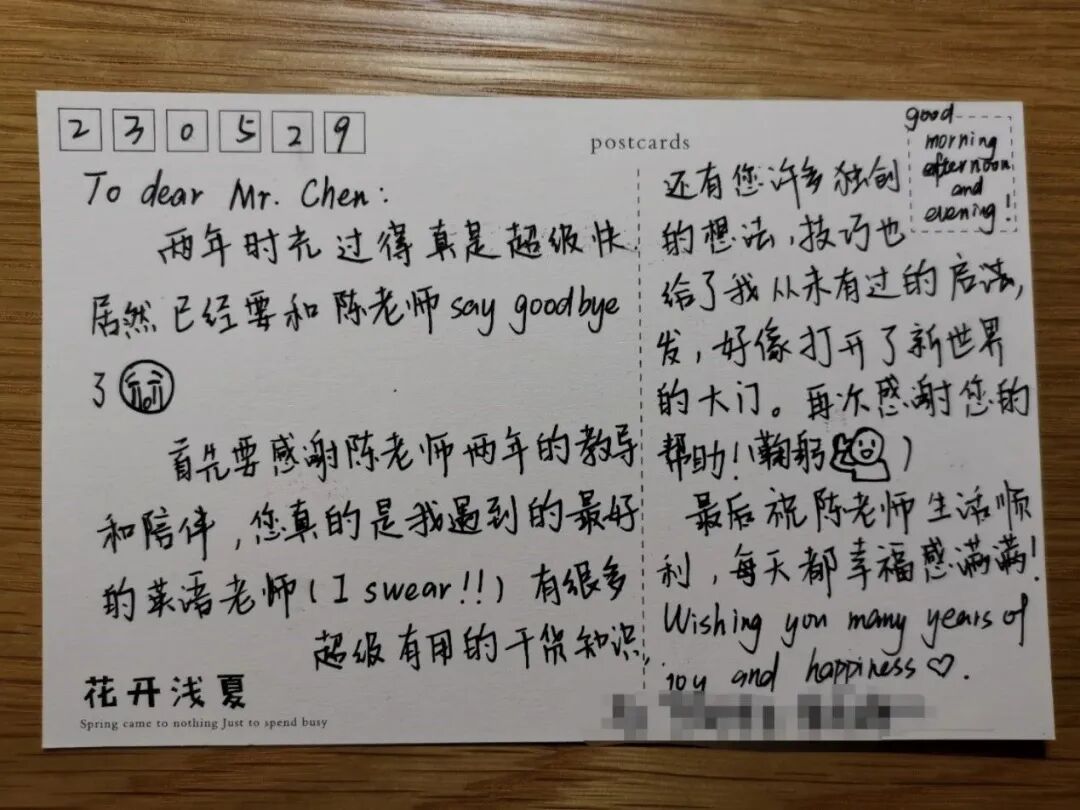 230529
postcards
good
morning
afternoon
and
evening!
To dear Mr. Chen:
两年时光过得真是超级快
居然已经要和陈老师say goodbye
了
首先要感谢陈老师两年的教导
和陪伴，您真的是我遇到的最好
的英语老师(I swear!!)有很多
超级有用的干货知识，
花开浅夏
Spring came to nothing Just to spend busy
还有您许多独创
的想法，技巧也
给了我从未有过的启
发，好像打开了新世界
的大门。再次感谢您的
帮助！(鞠躬)
最后祝陈老师生活顺
利，每天都幸福感满满！
Wishing you many years of
joy and happiness♡.